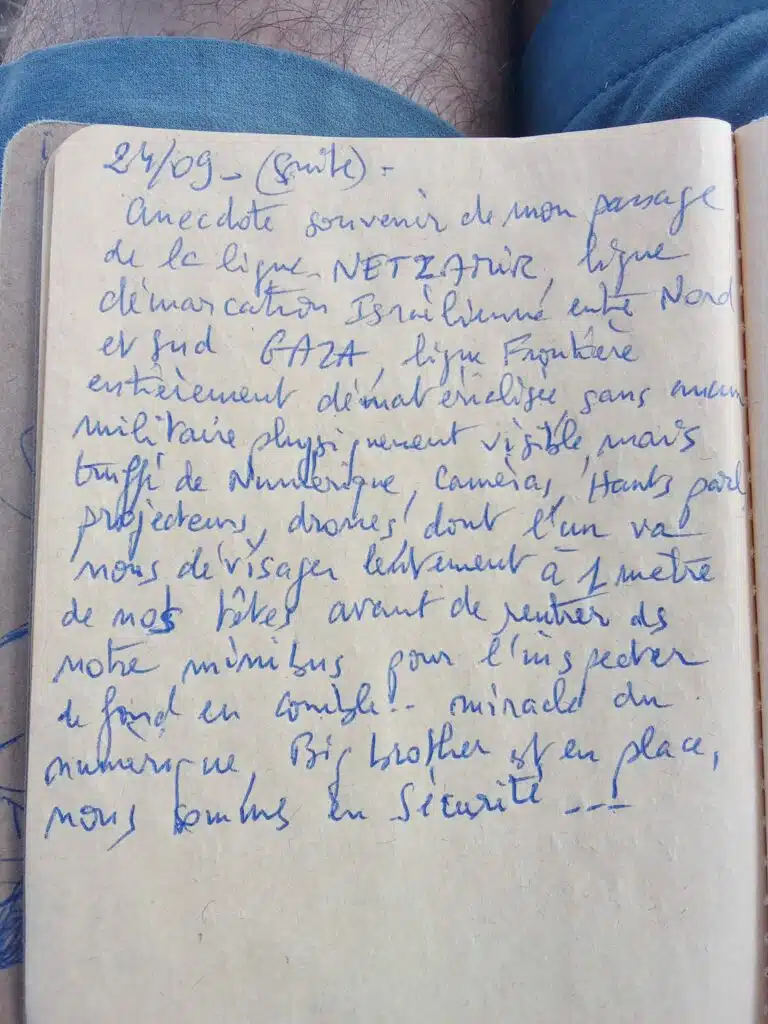 24/09 - (suite) -
Anecdote souvenir de mon passage
de la ligne NETZARIR, ligne
démarcation Israëlienne entre Nord
et Sud GAZA, ligne Frontière
entièrement dématérialisée, sans aucun
militaire physiquement visible, mais
truffé de Numérique, Caméras, Hauts parl
projecteurs, drones, dont l'un va
nous dévisager lentement à 1 mètre
de nos têtes avant de rentrer ds
notre minibus pour l'inspecter
de fond en comble.. miracle du
numérique, Big brother est en place,
nous sommes en Sécurité ---